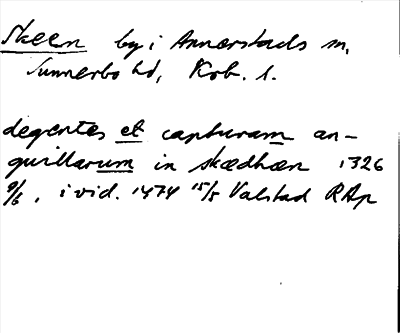 Skeen by i Annerstads sn,
Sunnerbo hd, Krb. l.
degentes et capturam an-
guillarum in skædhæn 1326
9/6, i vid. 1474 15/5 Valstad RAp